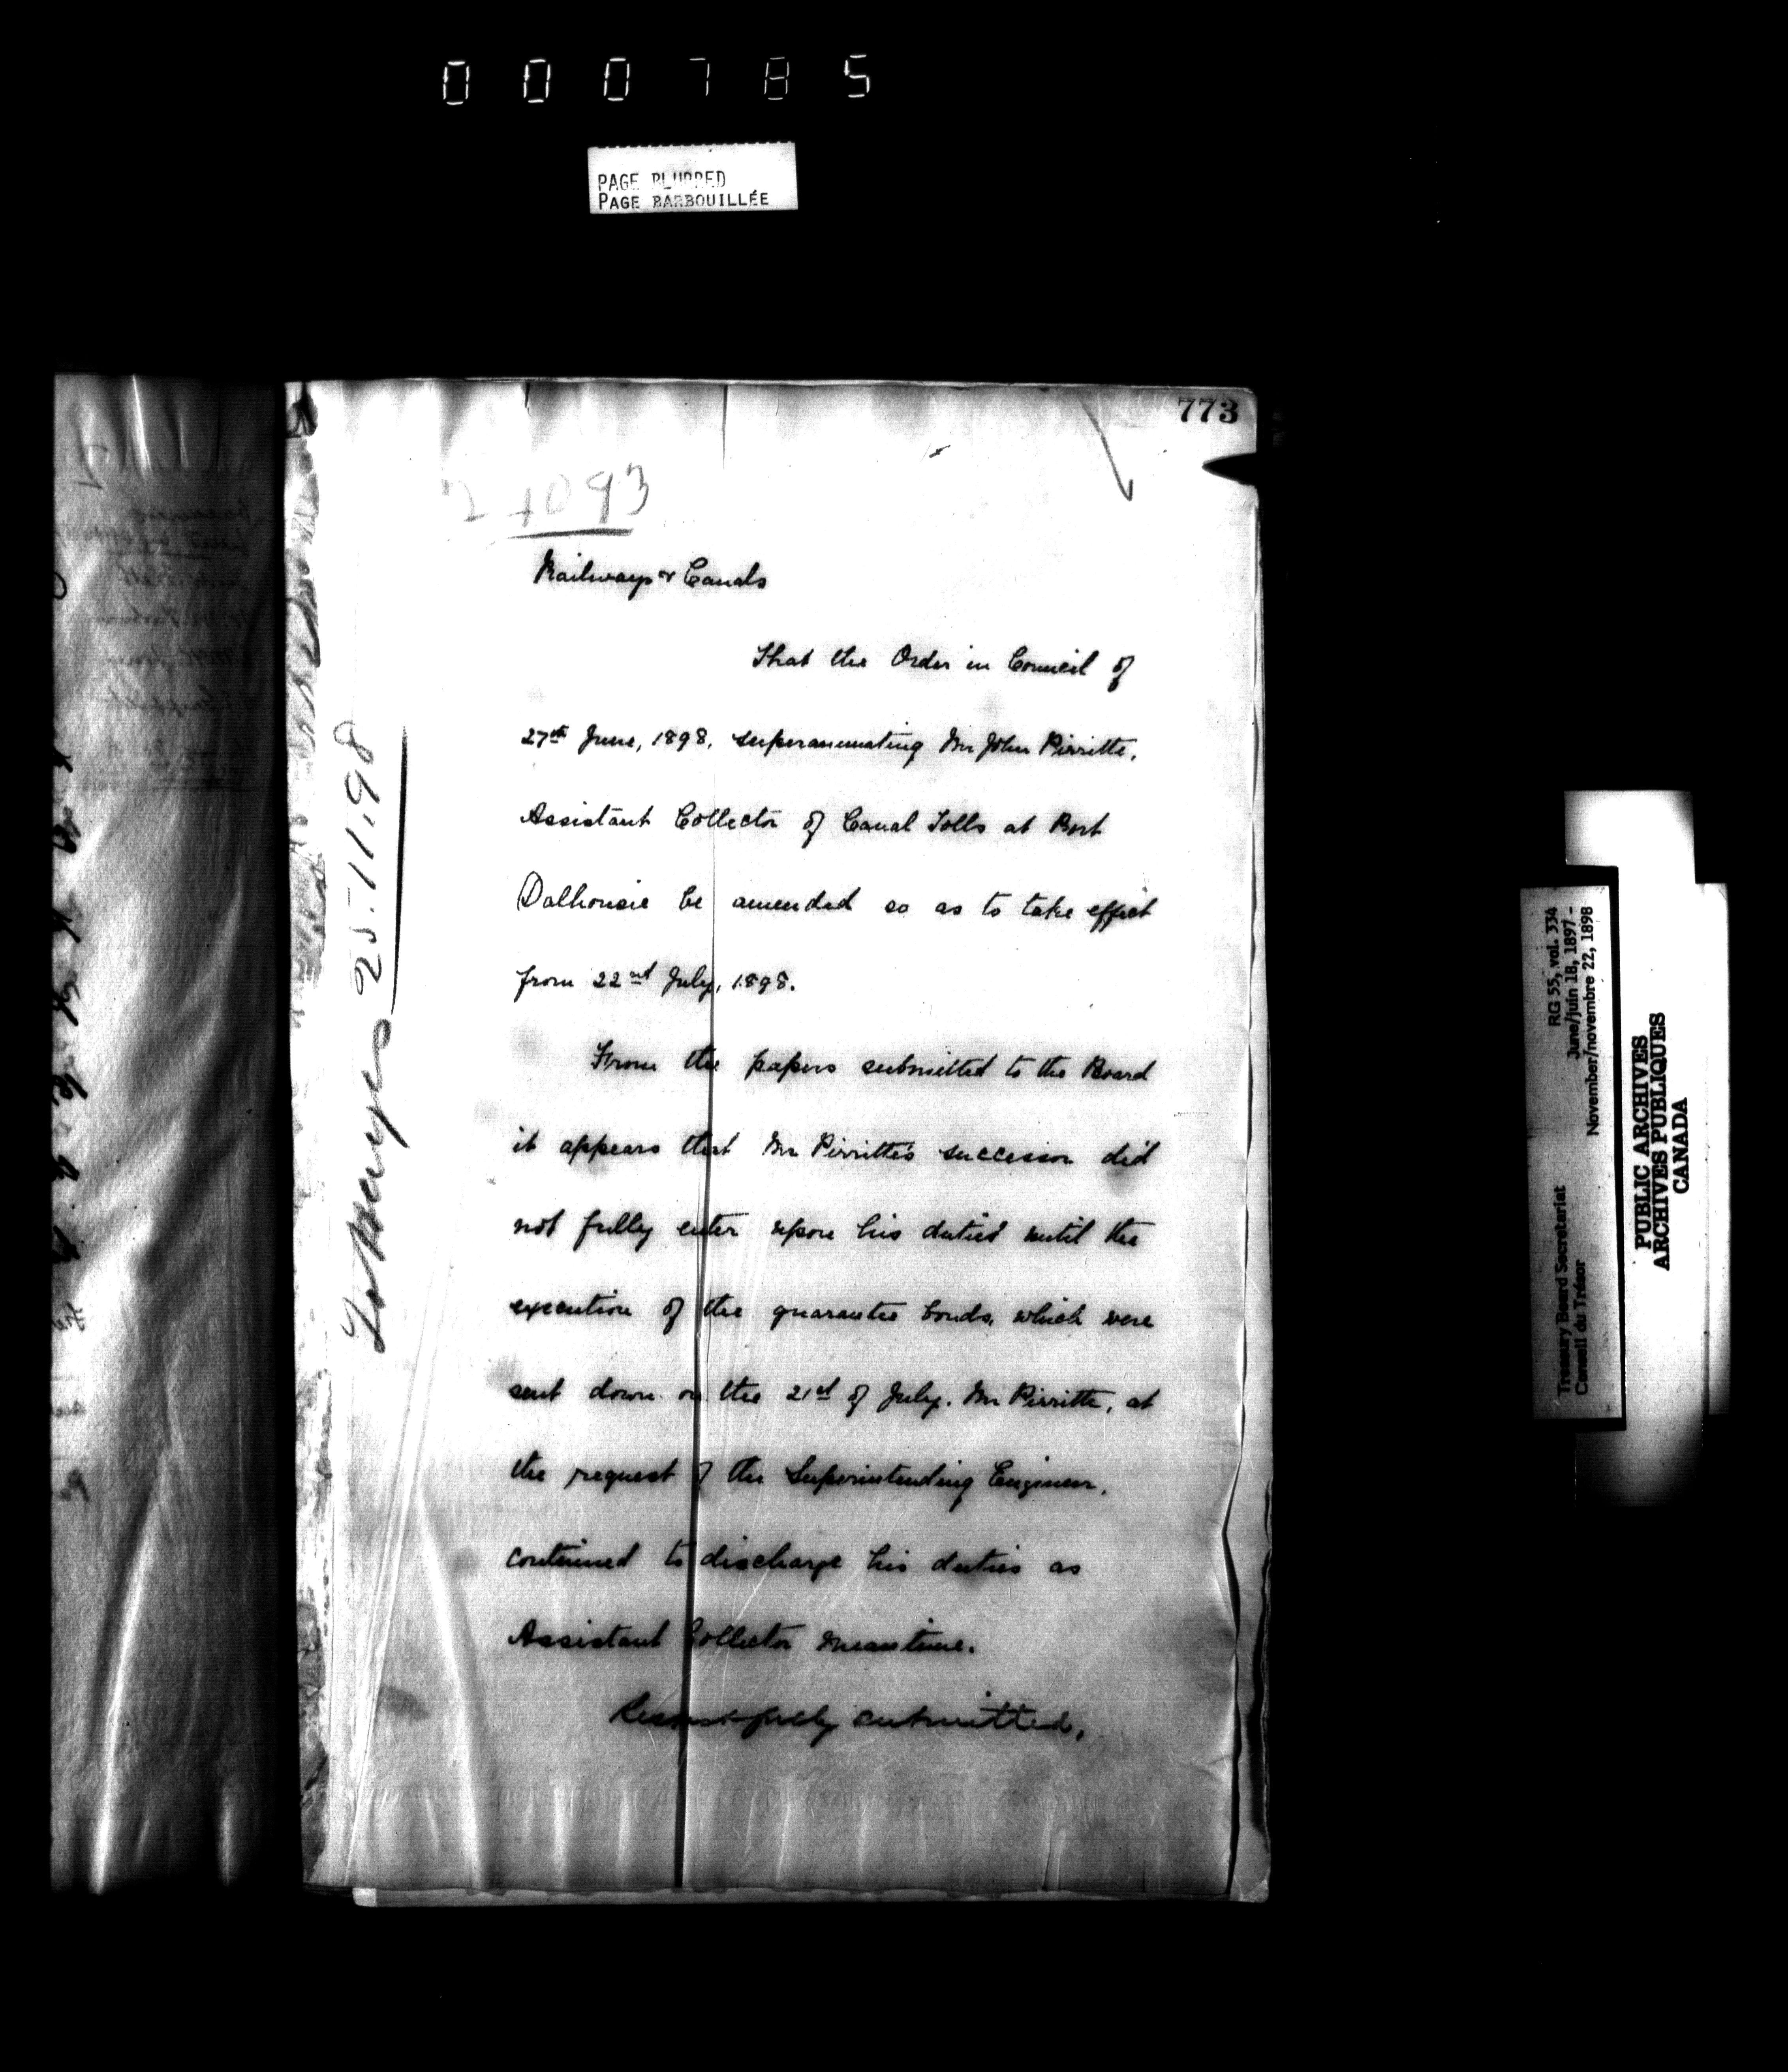 000785
PAGE BLURRED
PAGE BARBOUILLÉE
773
24093
Railways & Canals
That the Order in Council of
27th June, 1898, superannuating Mr John Pirritte,
Assistant Collector of Canal Tolls at Port
Dalhousie be amended so as to take effect
from 22nd July, 1898.
From the papers submitted to the Board
it appears that Mr Pirritte's successor did
not fully enter upon his duties until the
execution of the guarantee bonds, which were
sent down on the 21st of July. Mr Pirritte, at
the request of the Superintending Engineer,
continued to discharge his duties as
Assistant Collector meantime.
Respectfully submitted,
25.11.98
Treasury Board Secretariat RG 55, vol. 334
Conseil du Trésor June/juin 18, 1897 -
November/novembre 22, 1898
PUBLIC ARCHIVES
ARCHIVES PUBLIQUES
CANADA